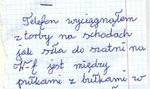 Telefon wyciągnąłem
z torby na schodach
jak szła do szatni na
w-f jest między
próbkami z bułkami w